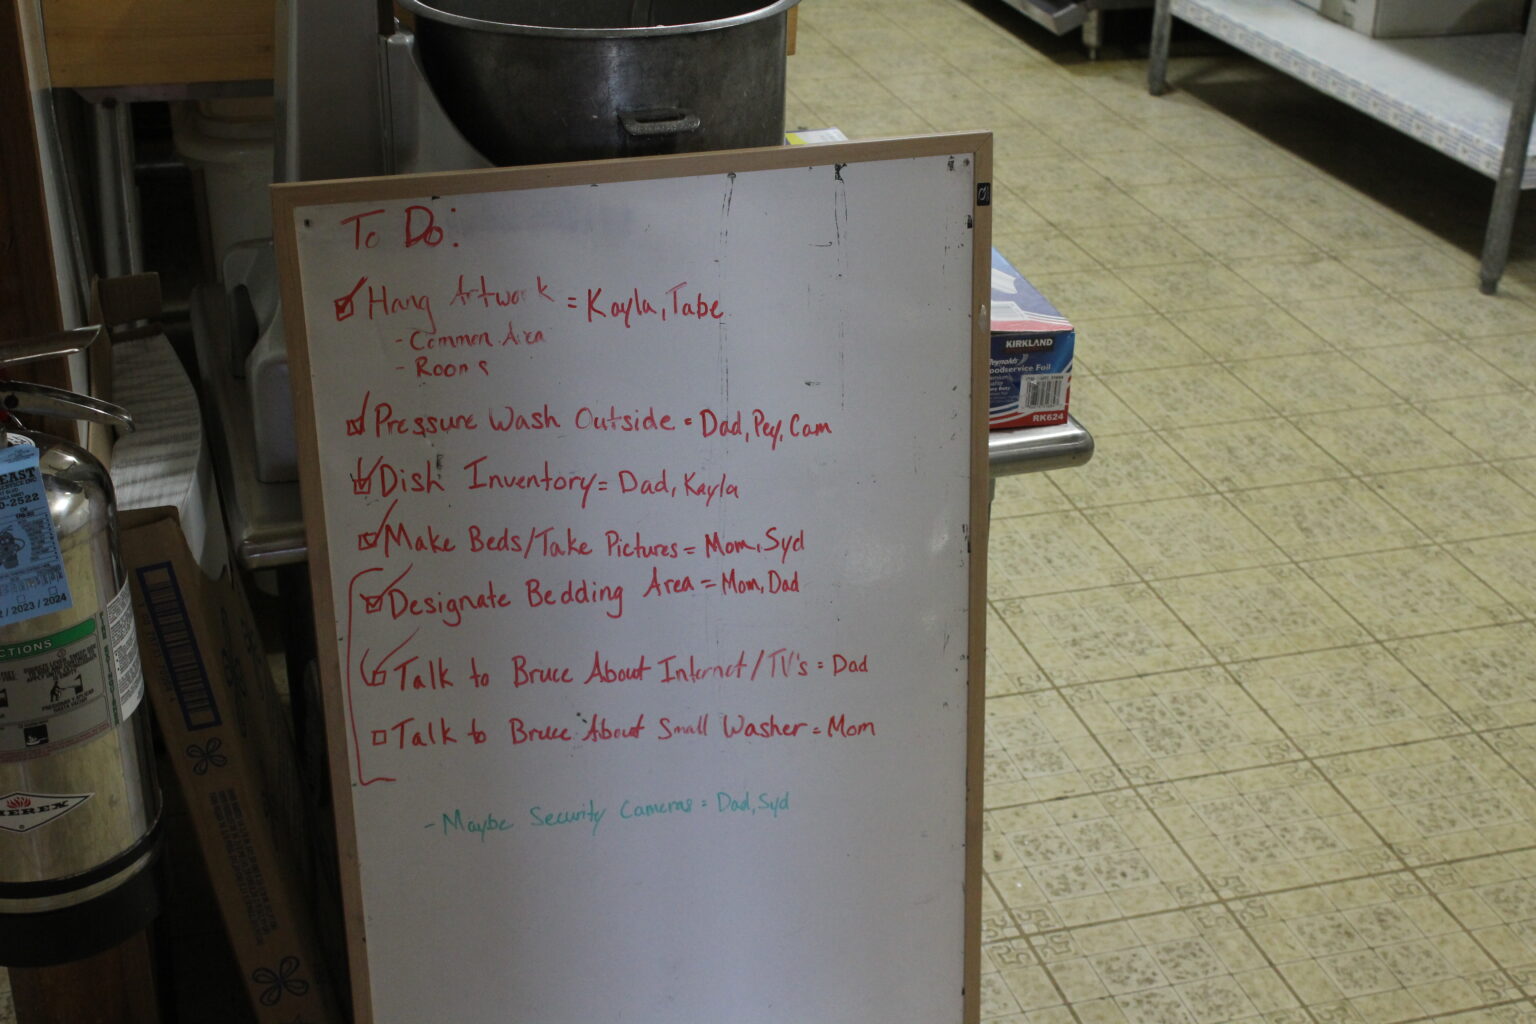 To Do:
Hang Artwork = Kayla, Tabe
- Common Area
- Rooms
Pressure Wash Outside = Dad, Pey, Cam
Dish Inventory = Dad, Kayla
Make Beds/Take Pictures = Mom, Syd
Designate Bedding Area = Mom, Dad
Talk to Bruce About Internet/TV's = Dad
Talk to Bruce About Small Washer = Mom
- Maybe Security Cameras = Dad, Syd
KIRKLAND
Foil
RK624
EAST
0-2522
/ 2023 / 2024
CTIONS